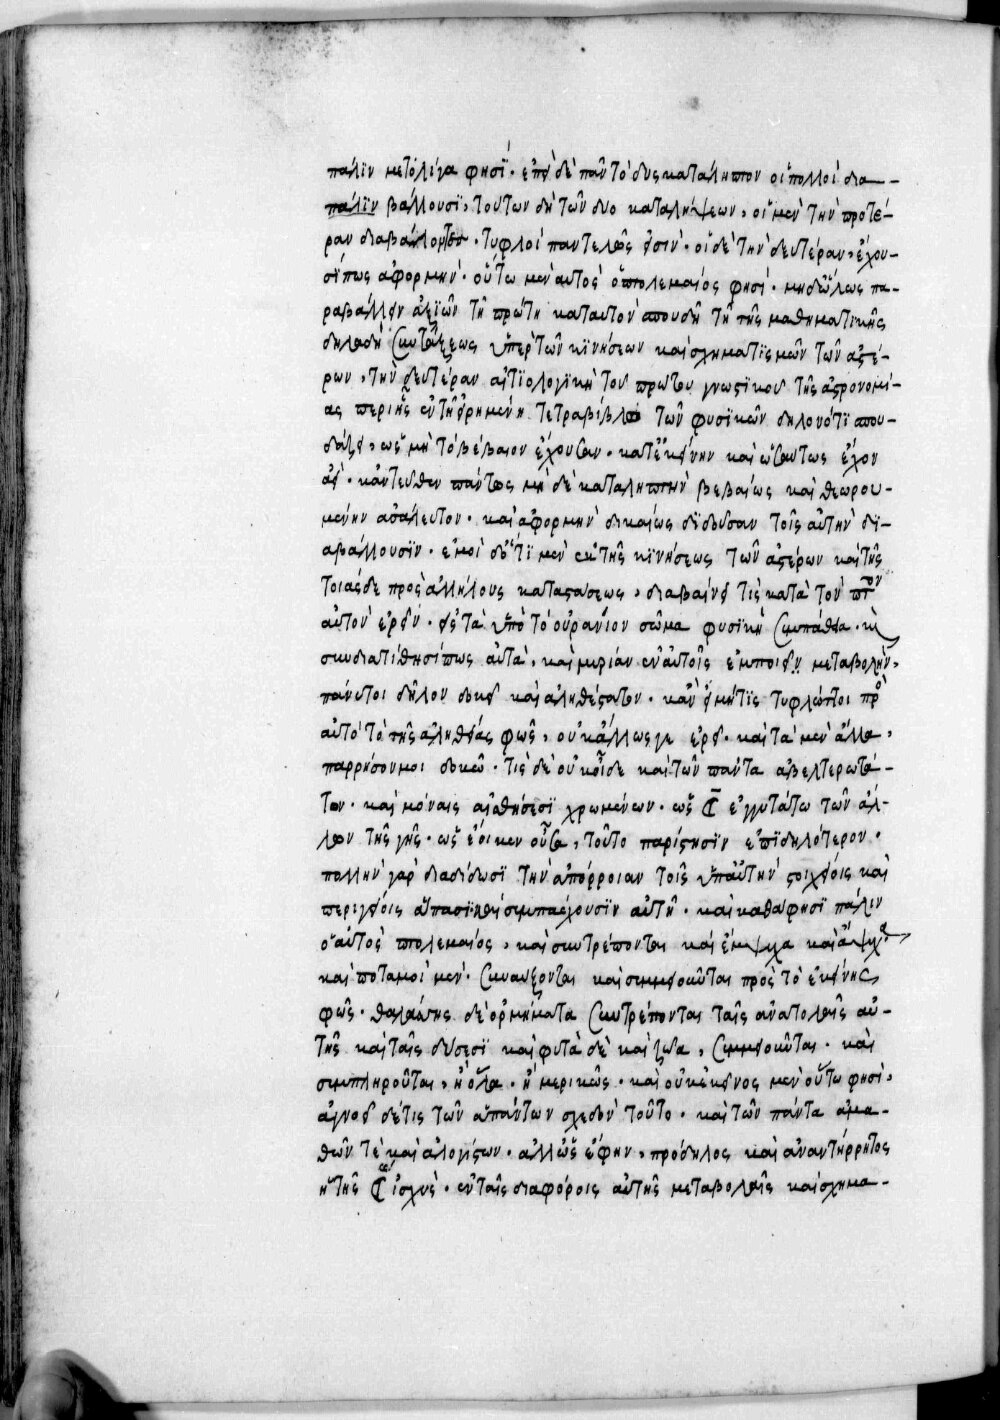 πάλιν μετολίγα φησί· ἐπεὶ δὲ πᾶν τὸ δυσκατάληπτον οἱ πολλοὶ δια-
πάλϊν βάλλουσϊ, τούτων δὴ τῶν δύο καταλήψεων, οἱ μὲν τὴν προτέ-
ραν διαβάλοντες· τυφλοὶ παντελῶς εἰσὶν· οἱ δὲ τὴν δευτέραν, ἔχου-
σί πως ἀφορμήν· οὕτω μὲν αὐτὸς ὁ πτολεμαῖός φησί· μηδὅλως πα-
ραβάλλειν ἀξιῶν τῇ πρώτῃ καταυτὸν σπουδῇ τῇ τῆς μαθηματικῆς
δηλαδὴ συντάξεως ὑπὲρ τῶν κινήσεων καὶ σχηματϊσμῶν τῶν ἀστέ-
ρων, τὴν δευτέραν αἰτϊολογϊκὴ τοῦ πρώτου γνωστικοῦ τῆς ἀστρονομί-
ας περὶ ἧς ἐν τῇ εἰρημένῃ τετραβίβλω τῶν φυσϊκῶν δηλονότϊ σπου-
δάζει, ὡς μὴ τὸ βέβαιον ἔχουσαν· κατ' ἐκείνην καὶ ὡσαύτως ἔχον
ἀεὶ· κἀντεῦθεν πάντως μὴ δὲ καταληπτὴν βεβαίως καὶ θεωρου-
μένην ἀσάλευτον· καὶ ἀφορμὴν δικαίως δϊδοῦσαν τοῖς αὐτὴν δϊ-
αβάλλουσϊν· ἐμοὶ δ' ὅτϊ μὲν ἐκ τῆς κϊνήσεως τῶν ἀστέρων καὶ τῆς
τοιᾶσδε πρὸς ἀλλήλους καταστάσεως, διαβαίνει τὶς κατὰ τὸν πτον
αὐτὸν ἐρεῖν· εἰς τὰ ὑπὸ τὸ οὐράνϊον σῶμα φυσϊκὴ συμπάθεια· κὶ
συνδιατίθησί πως αὐτὰ, καὶ μυρίαν ἐν αὐτοῖς ἐμποιεῖν μεταβολὴν,
πάνυτοι δῆλον δοκεῖ καὶ ἀληθέστατον· κἂν εἰ μήτϊς τυφλώττοι πρὸ
αὐτὸ τὸ τῆς ἀληθείας φῶς, οὐκ ἄλλως γε ἐρεῖ· καὶ τὰ μὲν ἄλλα,
παρρήσομοι δοκῶ· τίς δὲ οὐκ οἶδε καὶ τῶν πάντα ἀβελτερωτά-
των· καὶ μόναις αἰσθήσεσϊ χρωμένων· ὡς ☾ ἐγγυτάτω τῶν ἄλ-
λων τῆς γῆς· ὡς ἔοικεν οὖσα, τοῦτο παρίστησϊν ἐπϊδηλότερον·
πολλὴν γὰρ διαδίδωσϊ τὴν ἀπόρροιαν τοῖς ὑπ' αὐτὴν στοιχείοις καὶ
περιγείοις ἅπασϊ καὶ συμπασχουσϊν αὐτῇ· καὶ καθά φησϊ πάλιν
ὁ αὐτὸς πτολεμαῖος, καὶ συντρέπονται καὶ ἔμψυχα καὶ ἄψυχα
καὶ ποταμοὶ μὲν· συναύξονται καὶ συμμειοῦνται πρὸς τὸ ἐκείνης
φῶς· θαλάττης δὲ ὁρμήματα συντρέπονται ταῖς ἀνατολαῖς αὐ-
τῆς καὶ ταῖς δύσεσϊ καὶ φυτὰ δὲ καὶ ζῶα, συμμειοῦται· καὶ
συμπληροῦται, ἢ ὅλα· ἢ μερικῶς· καὶ οὐκ ἐκεῖνος μὲν οὕτω φησὶ,
ἀγνοεῖ δέ τις τῶν ἁπάντων σχεδὸν τοῦτο· καὶ τῶν πάντα ἀμα-
θῶν τὲ καὶ ἀλογίστων· ἀλλ' ὡς ἔφην, πρόδηλος καὶ ἀναντίρρητος
ἡ τῆς ☾ ἰσχὺς· ἐν ταῖς διαφόροις αὐτῆς μεταβολαῖς καὶ σχημα-